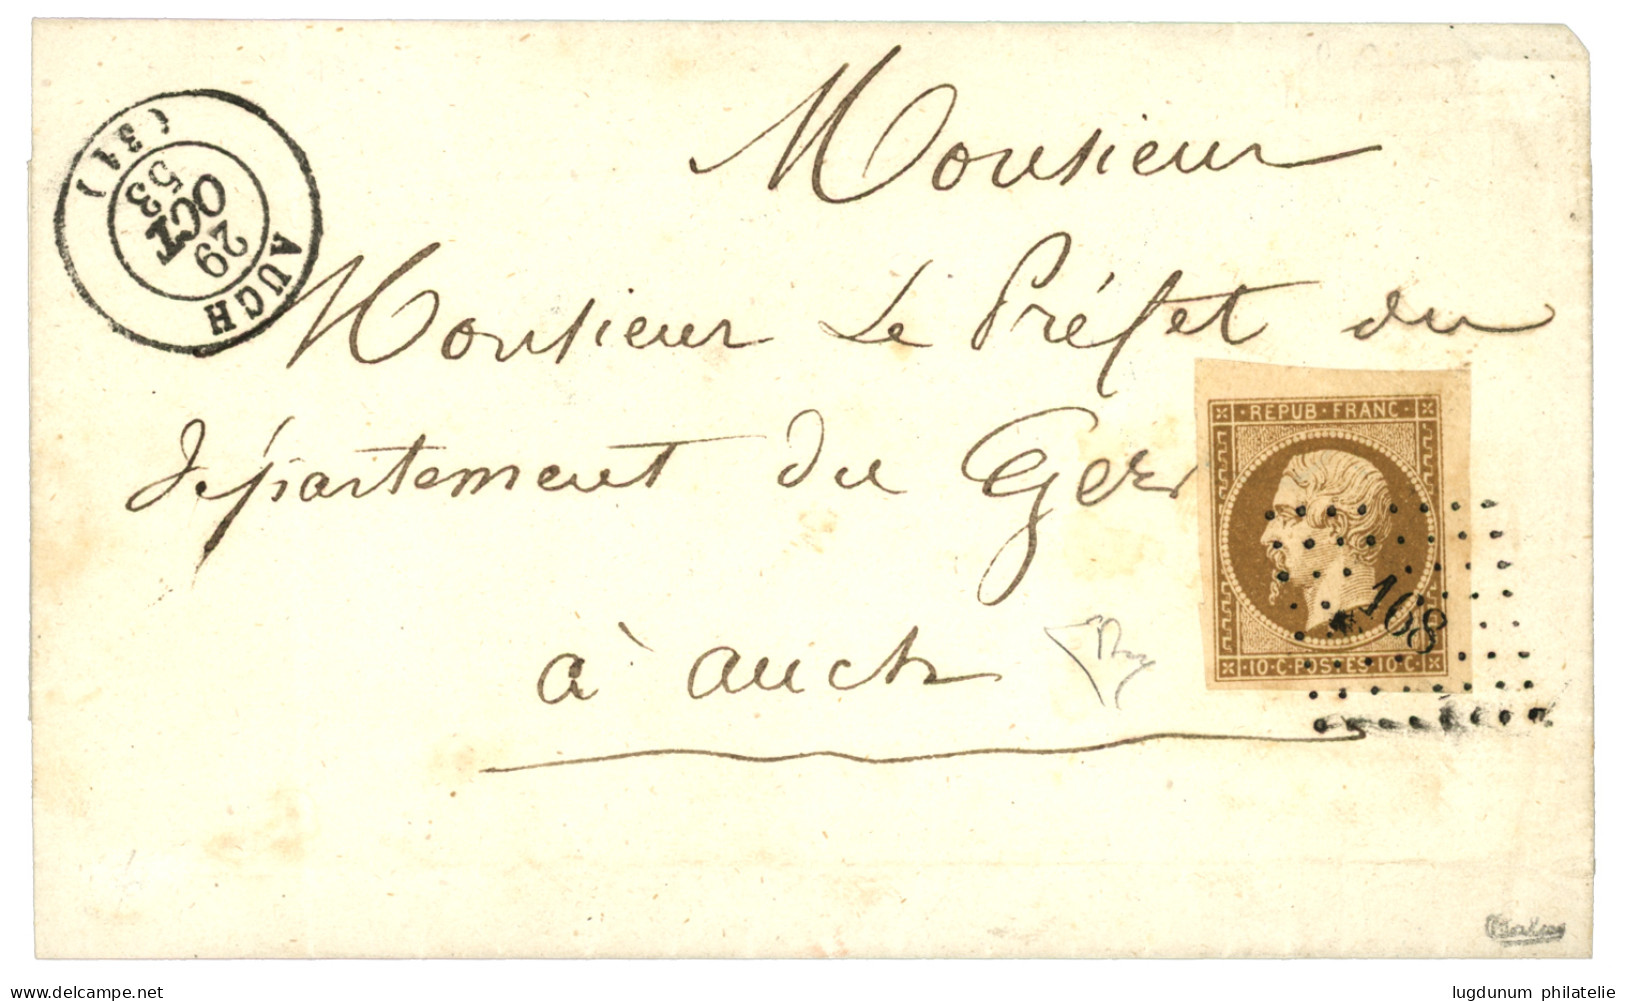 AUCH
29
OCT
53
(31)
Monsieur
Monsieur Le Préfet du
département du Gers
à auch
· REPUB · FRANC ·
168
10 · C · POSTES · 10 · C ·
www.delcampe.net
lugdunum philatelie